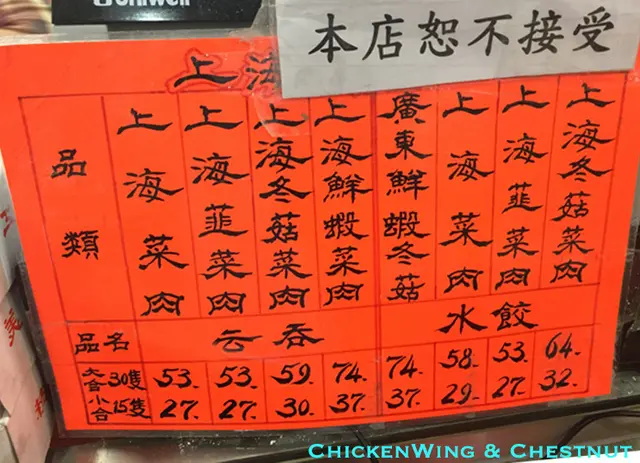 Uniwell
本店恕不接受
上海
品類
上海菜肉
上海韮菜肉
上海冬菇菜肉
上海鮮蝦菜肉
廣東鮮蝦冬菇
上海菜肉
上海韮菜肉
上海冬菇菜肉
品名 云吞 水餃
大合 30隻 53. 53. 59. 74. 74. 58. 53. 64.
小合 15隻 27. 27. 30. 37. 37. 29. 27. 32.
ChickenWing & Chestnut